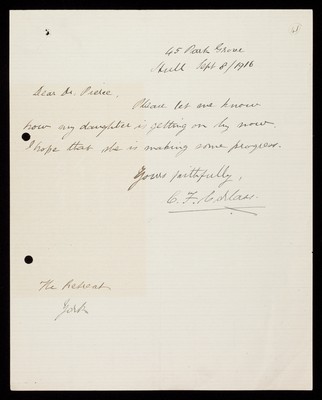 45 Park Grove
Hull Sept 8/1916
Dear Dr. Pierce,
Please let me know
how my daughter is getting on by now.
I hope that she is making some progress.
Yours faithfully,
C. F.
The Retreat
York